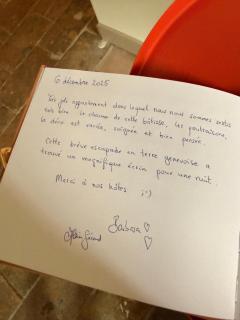 6 décembre 2025
Très joli appartement dans lequel nous nous sommes sentis
très bien. Le charme de cette bâtisse, les poutraisons,
la déco est variée, soignée et bien pensée.
Cette brève escapade en terre genevoise a
trouvé un magnifique écrin pour une nuit.
Merci à nos hôtes :-)
Barbara ♡
♡